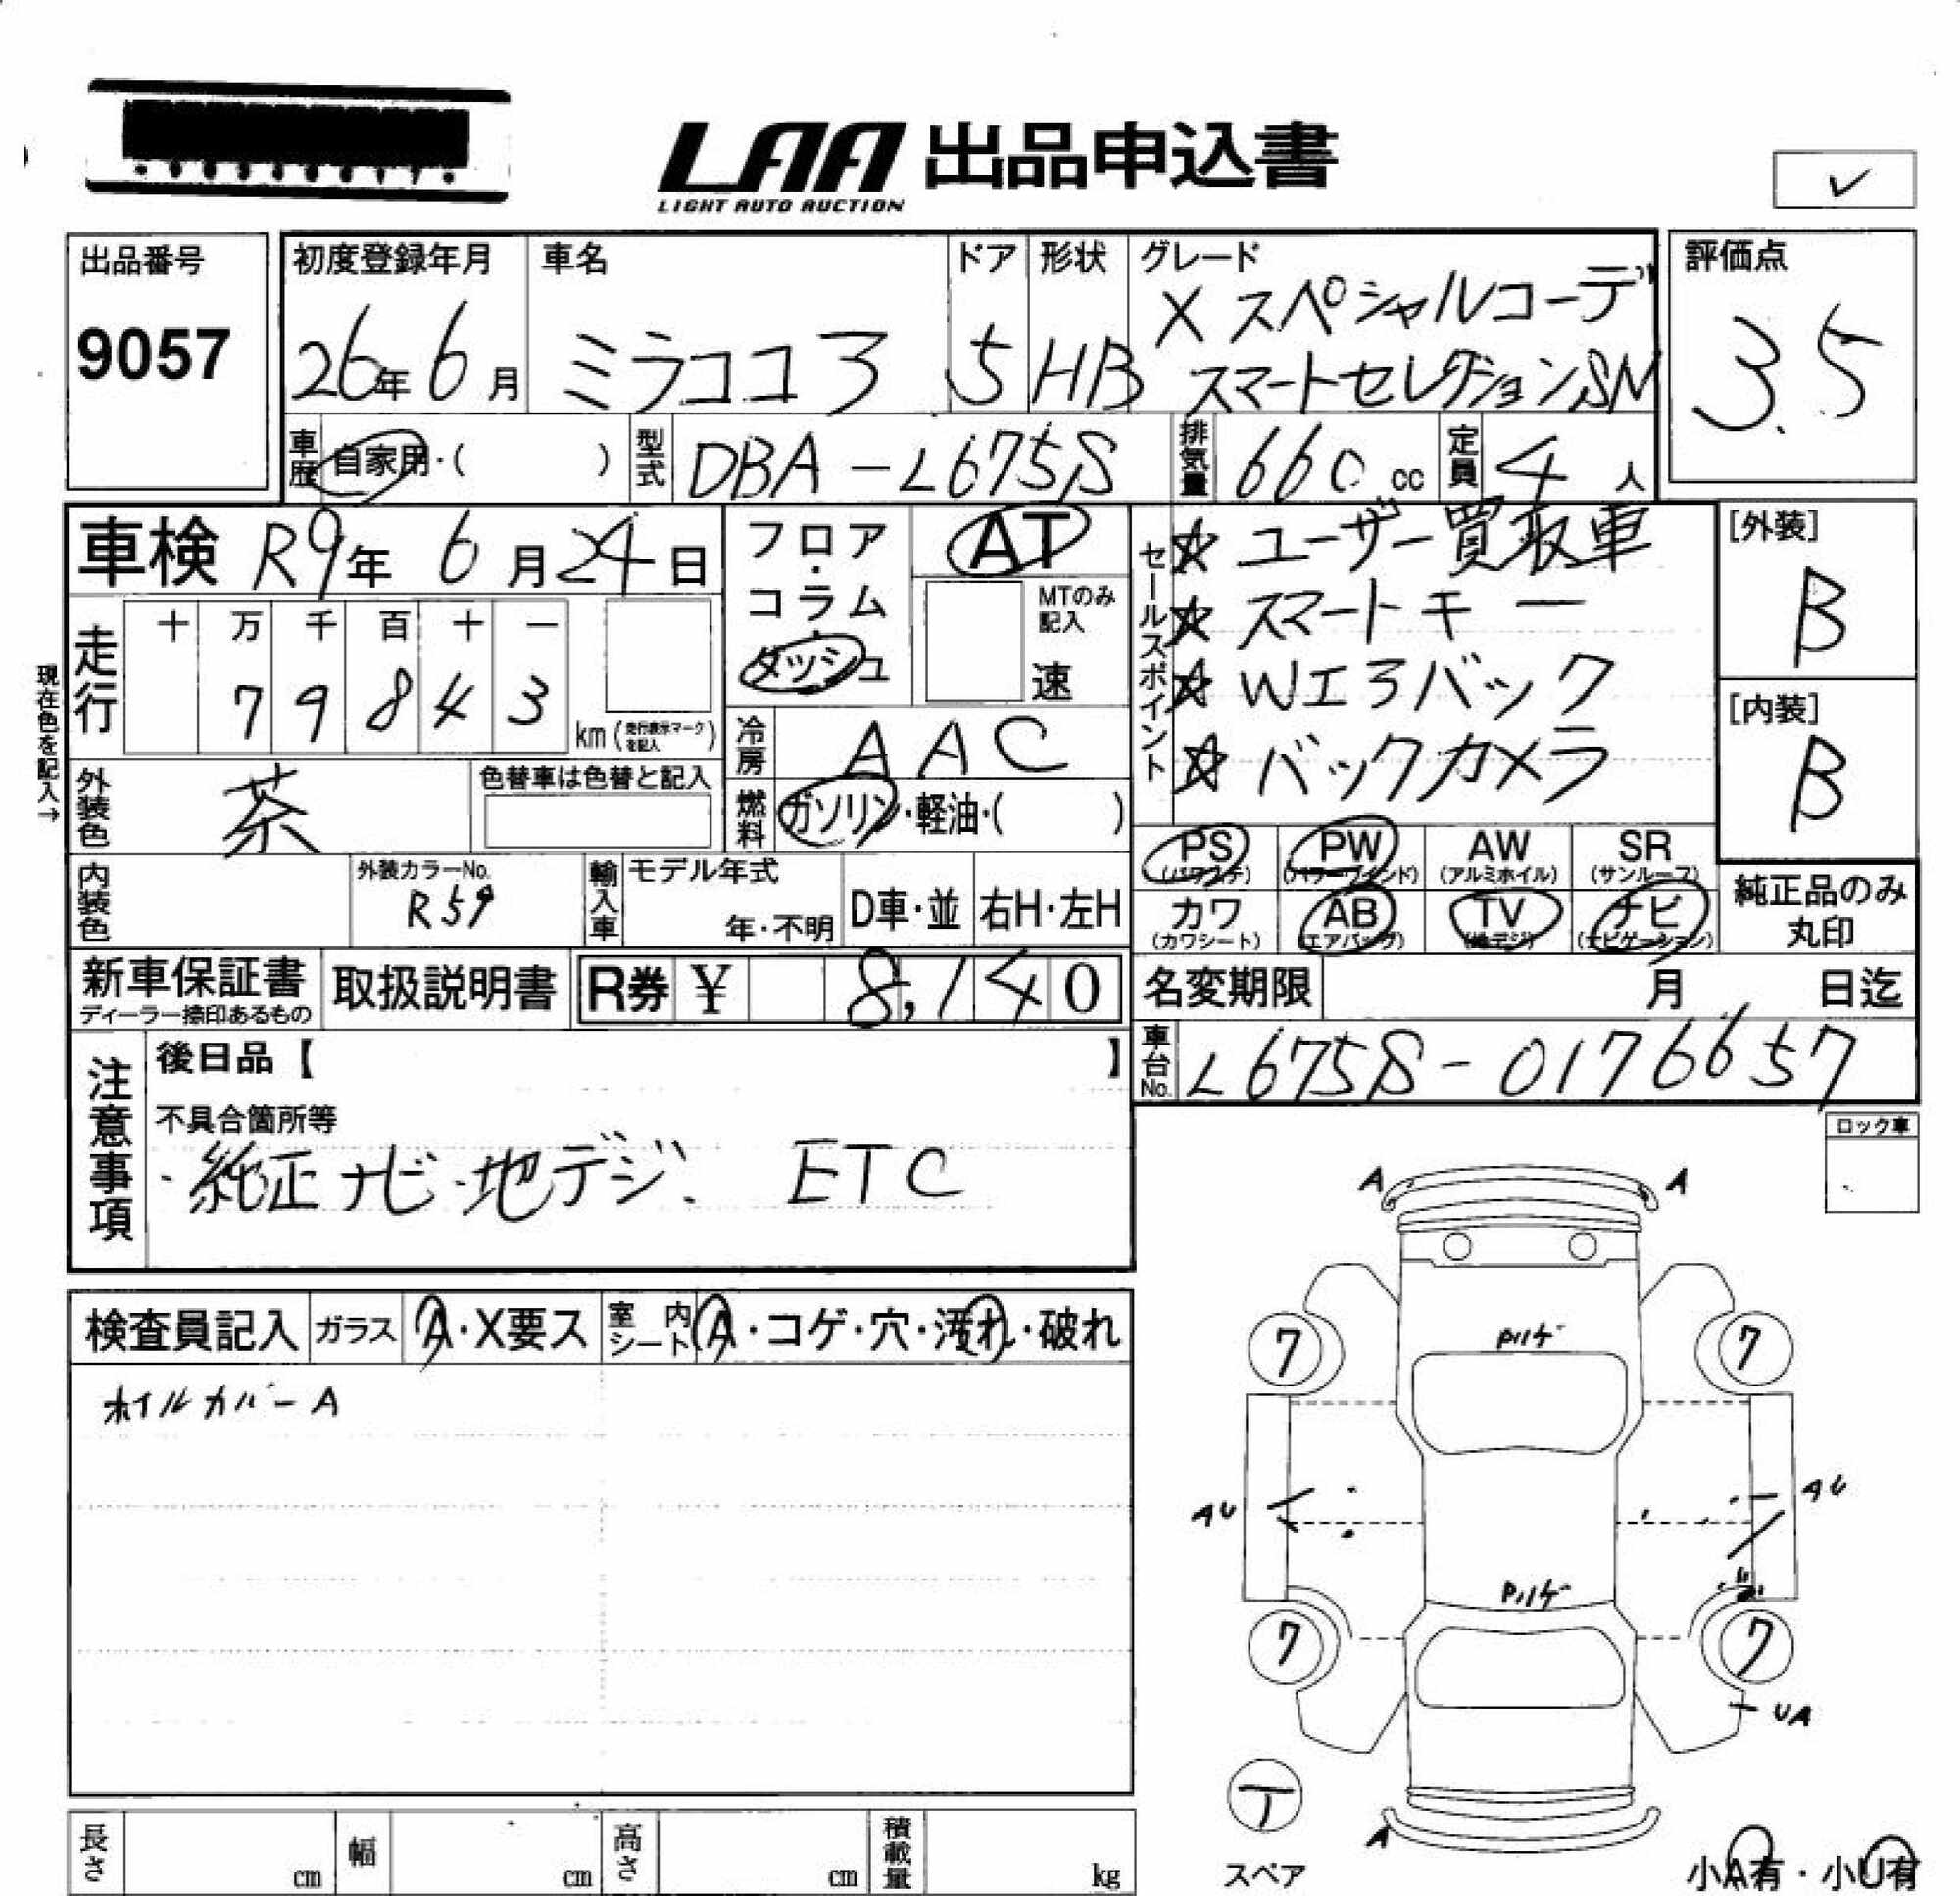 LAA 出品申込書
LIGHT AUTO AUCTION
✓
出品番号
9057
初度登録年月
26年6月
車名
ミラココア
ドア
5
形状
HB
グレード
X スペシャルコーデ
スマートセレクションSN
評価点
3.5
車歴 自家用・( )
型式 DBA-L675S
排気量 660 cc
定員 4人
車検 R9年6月24日
現在色を記入→
走行
十 万 千 百 十 一
7 9 8 4 3
km (走行表示マークを記入)
フロア・コラム・ダッシュ
AT
MTのみ記入
速
冷房 AAC
燃料 ガソリン・軽油・( )
セールスポイント
☆ ユーザー買取車
☆ スマートキー
☆ Wエアバック
☆ バックカメラ
[外装]
B
[内装]
B
外装色 茶
色替車は色替と記入
内装色
外装カラーNo.
R59
輸入車
モデル年式
年・不明
D車・並
右H・左H
PS (パワステ)
PW (パワーウインド)
AW (アルミホイル)
SR (サンルーフ)
カワ (カワシート)
AB (エアバッグ)
TV (地デジ)
ナビ (ナビゲーション)
純正品のみ
丸印
新車保証書
ディーラー捺印あるもの
取扱説明書
R券 ¥ 8,140
名変期限 月 日迄
車台No. L675S-0176657
注意事項
後日品【 】
不具合箇所等
・純正ナビ・地デジ、 ETC
ロック車
検査員記入
ガラス A・X要ス
室内シート A・コゲ・穴・汚れ・破れ
ホイルカバーA
A A
7 7
Pハゲ
AU AU
Pハゲ
7 7
UA
T
スペア
A
小A有・小U有
長さ cm
幅 cm
高さ cm
積載量 kg